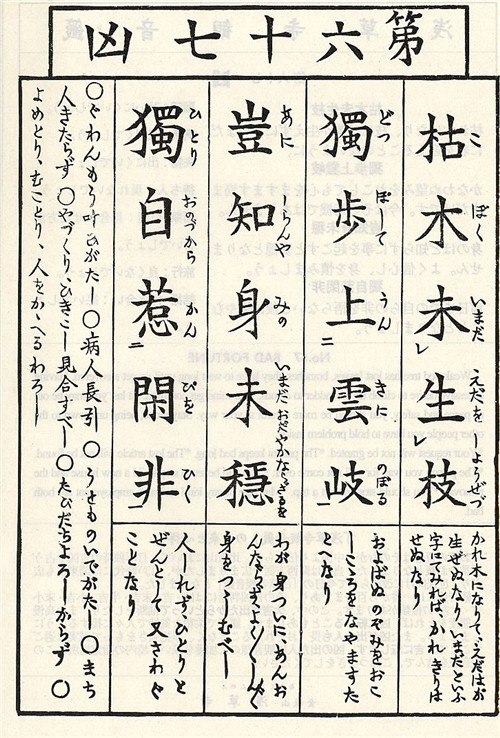 第六十七凶
枯木未生枝
こぼくいまだえだをしやうぜず
かれ木になりてゝえだはが
生ぜぬなり、いまだといふ
字にてみれば、かれきりは
せぬなり
獨歩上雲岐
どつぽてうんきにのぼる
およばぬのぞみをおこ
しこゝろをなやますた
とへなり
豈知身未穩
あにしらんやみのいまだおだやかならざるを
わが身いまにあんお
んならずよく〳〵
身をつゝしむべし
獨自惹閑非
ひとりおのづからかんぴをひく
ひとりと
ぜんとして又さわぐ
ことなり
○ぐわんもう叶ひがたし○病人長引○うせものいでがたし○まち
人きたらず○やづくり、ひきこし見合すべし○たびだちよろしからず○
よめとり、むことり、人をかゝへるわろし